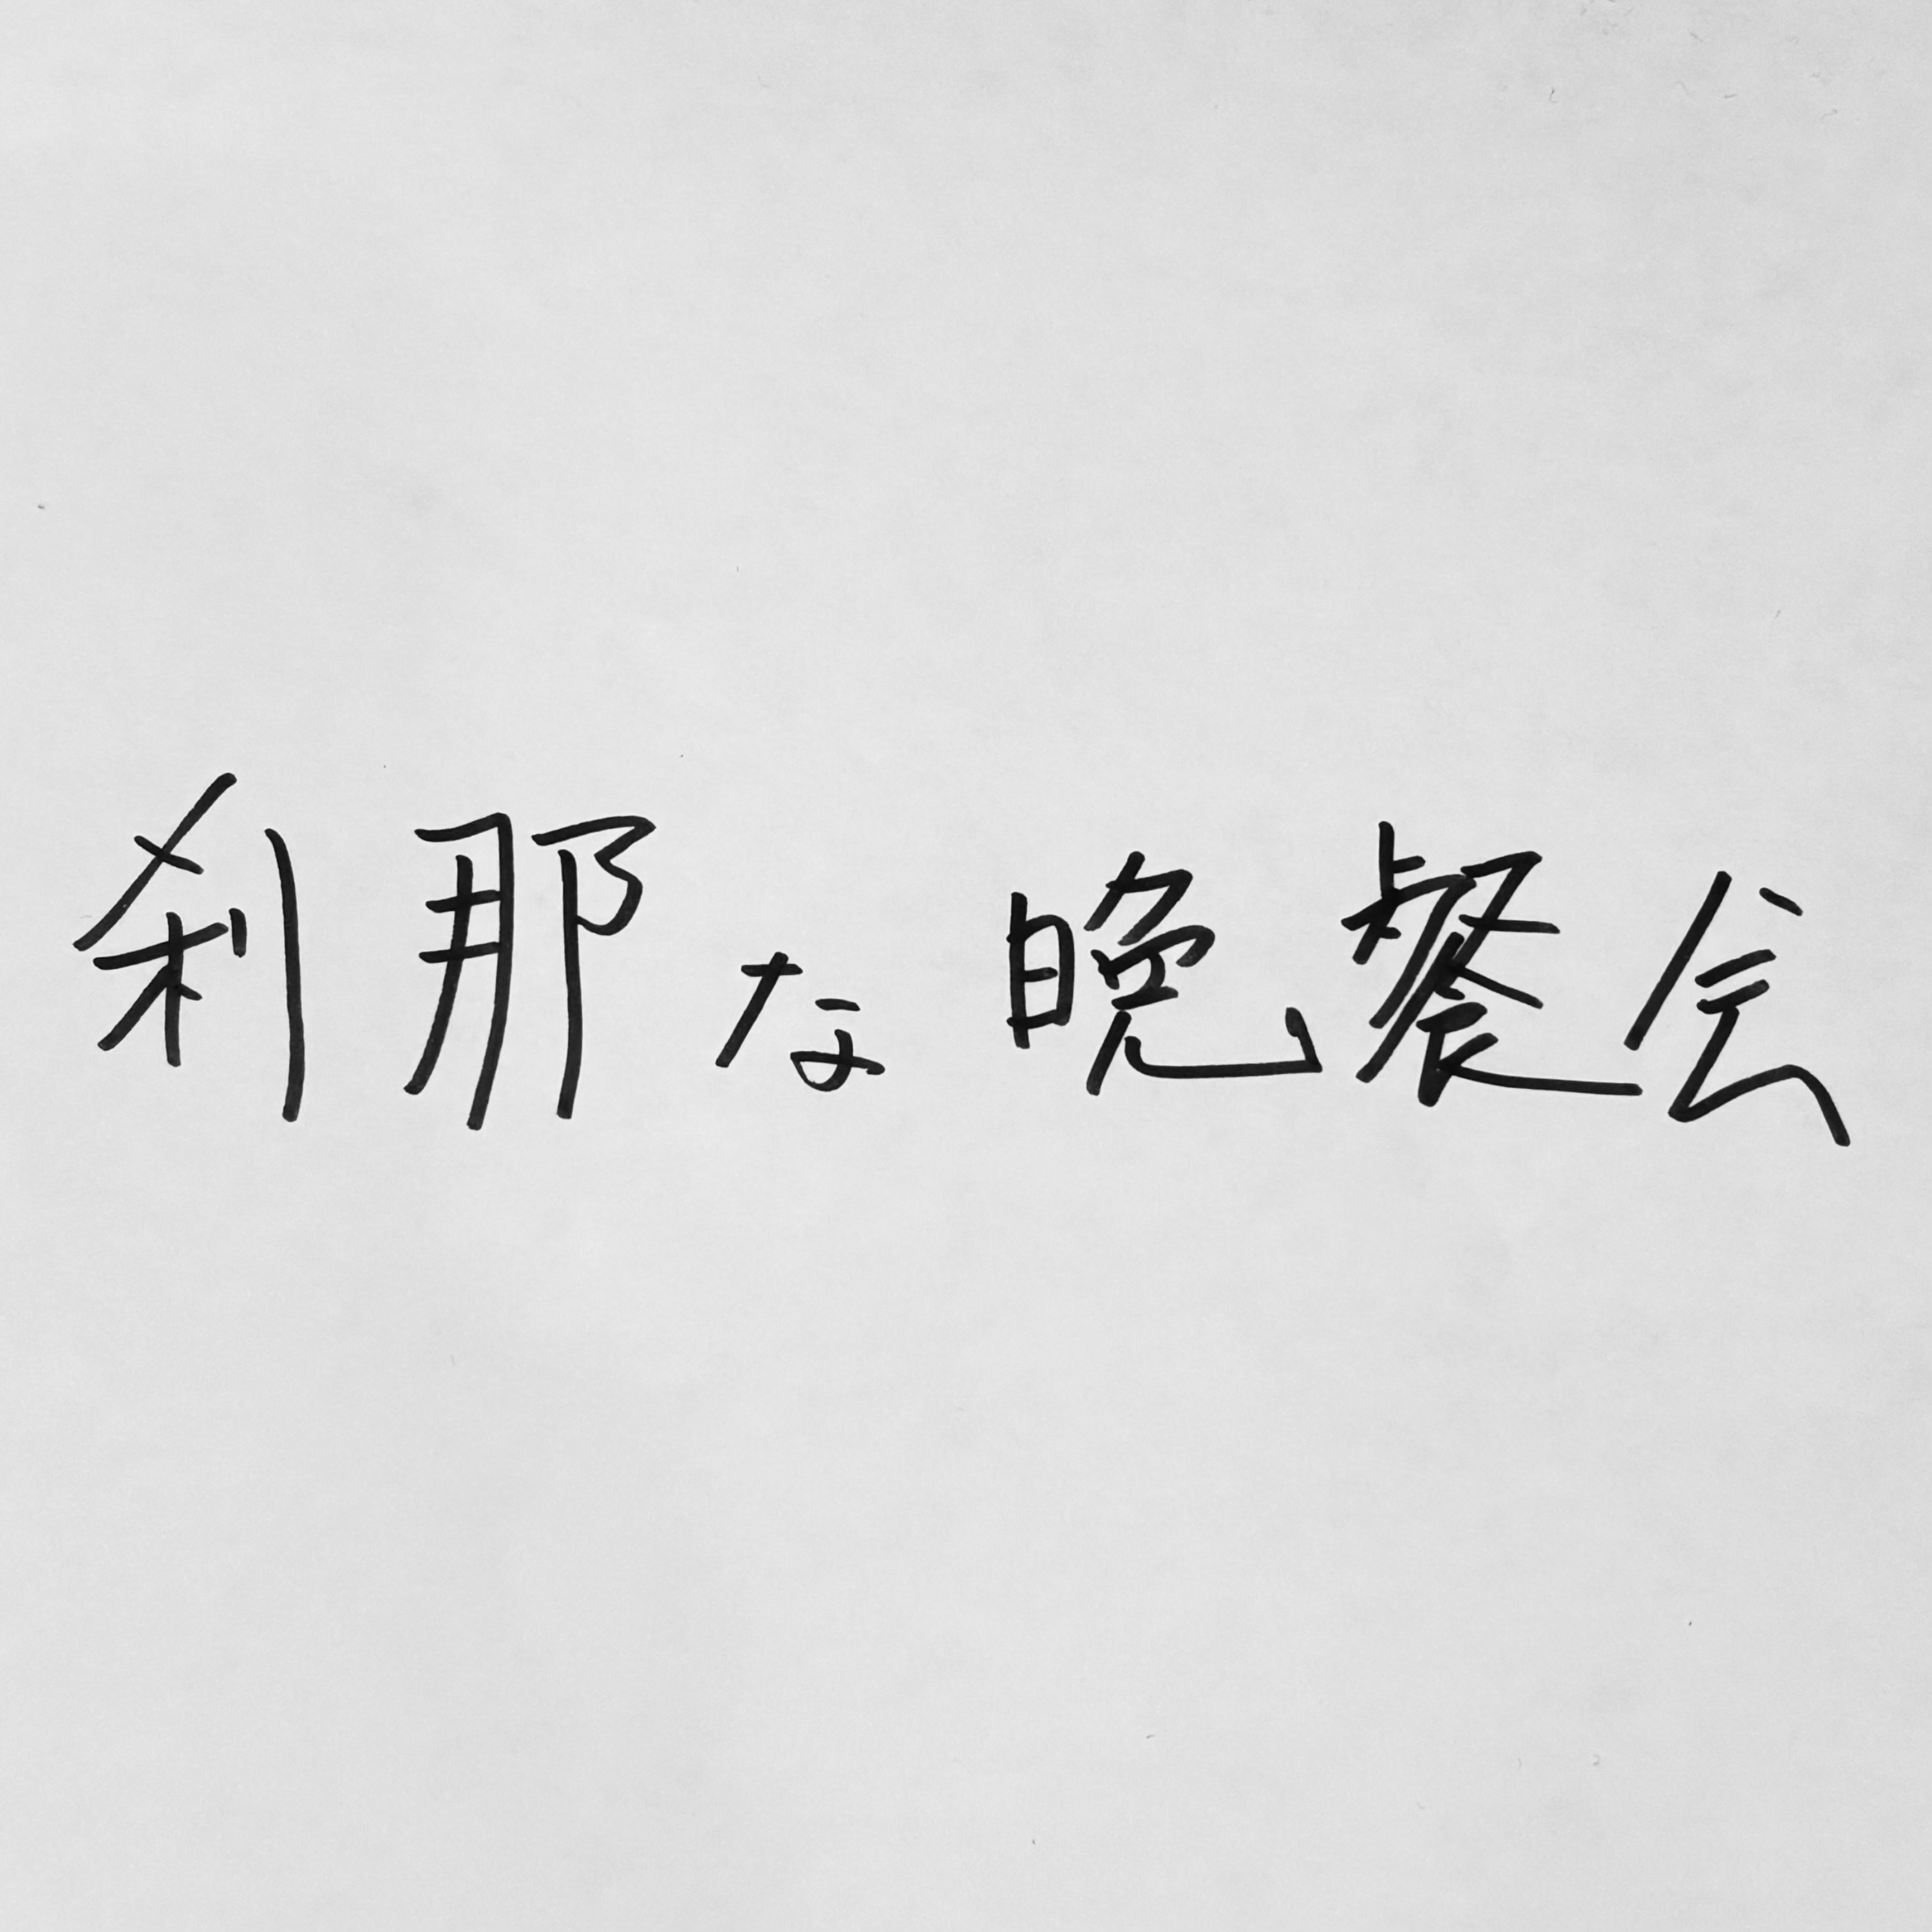 刹那な晩餐会